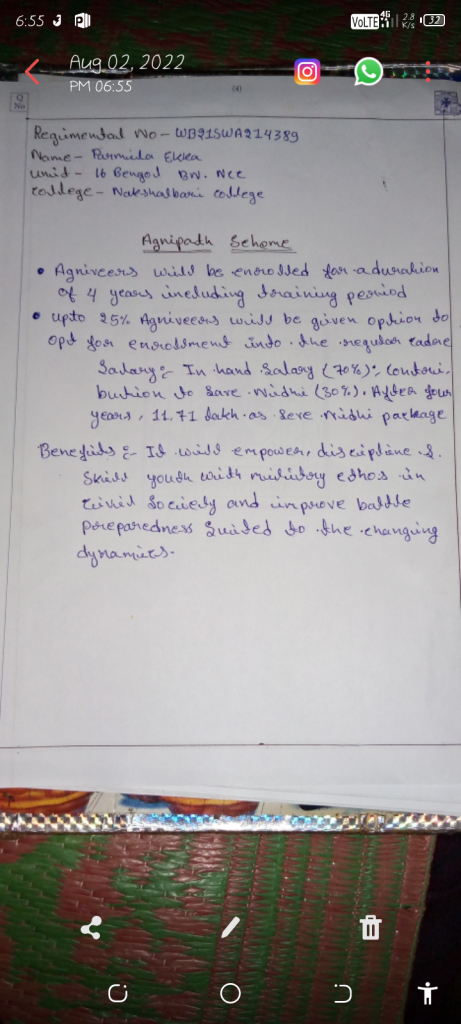 6:55
VoLTE 4G 2.8 K/s 32
Aug 02, 2022
PM 06:55
(4)
Q No
Regimental No - WB21SWA214389
Name - Parmila Ekka
Unid - 16 Bengal BN. NCC
College - Nakshalbari College
Agnipadh Scheme
• Agniveers will be enrolled for a duration
of 4 years including training period
• upto 25% Agniveers will be given option to
opt for enrollment into the regular cadre
Salary :- In hand Salary (70%); Contri-
bution to Save Nidhi (30%). After four
years, 11.71 lakh as Seve Nidhi package
Benefits :- It will empower, discipline &
Skill youth with military ethos in
Civil Society and improve battle
preparedness Suited to the changing
dynamics.